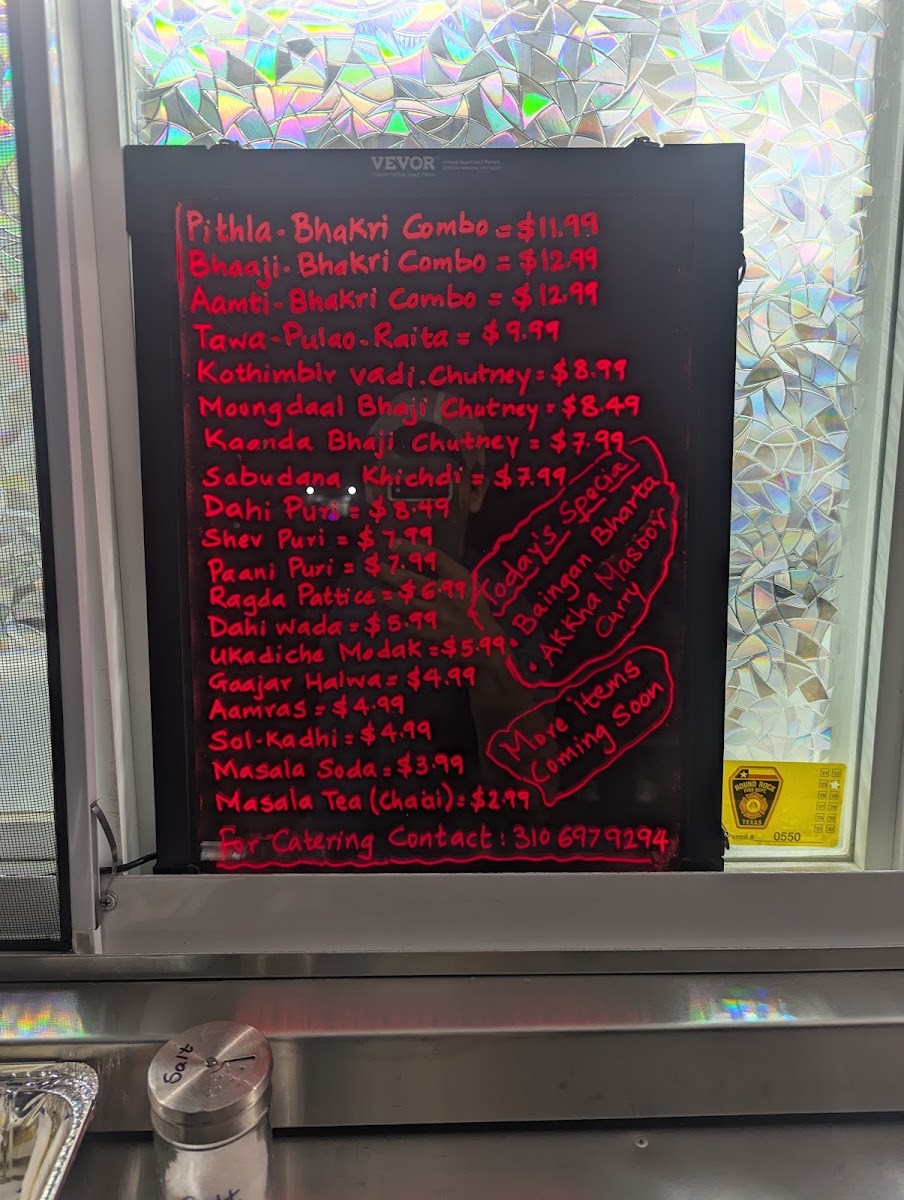 VEVOR
Pithla-Bhakri Combo = $11.99
Bhaaji-Bhakri Combo = $12.99
Aamti-Bhakri Combo = $12.99
Tawa-Pulao-Raita = $9.99
Kothimbir vadi.Chutney = $8.99
Moongdaal Bhaji Chutney = $8.49
Kaanda Bhaji Chutney = $7.99
Sabudana Khichdi = $7.99
Dahi Puri = $8.49
Shev Puri = $7.99
Paani Puri = $7.99
Ragda Pattice = $6.99
Dahi Wada = $5.99
Ukadiche Modak = $5.99
Gaajar Halwa = $4.99
Aamras = $4.99
Sol-Kadhi = $4.99
Masala Soda = $3.99
Masala Tea (Chaai) = $2.99
For Catering Contact : 310 697 9294
Today's Special
• Baingan Bharta
• Akkha Masoor
Curry
More Items
Coming Soon
ROUND ROCK
FIRE DEPT
TEXAS
Permit # 0550
Salt